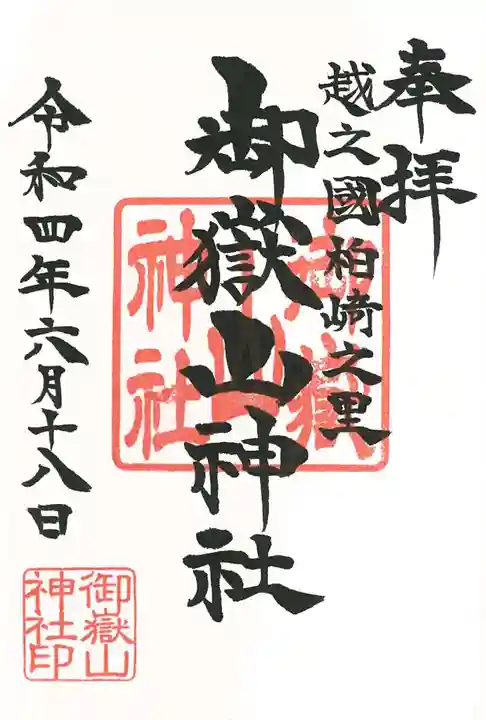 奉拝
越之國柏崎之里
御嶽山神社
令和四年六月十八日
御嶽山
神社
御嶽山
神社印